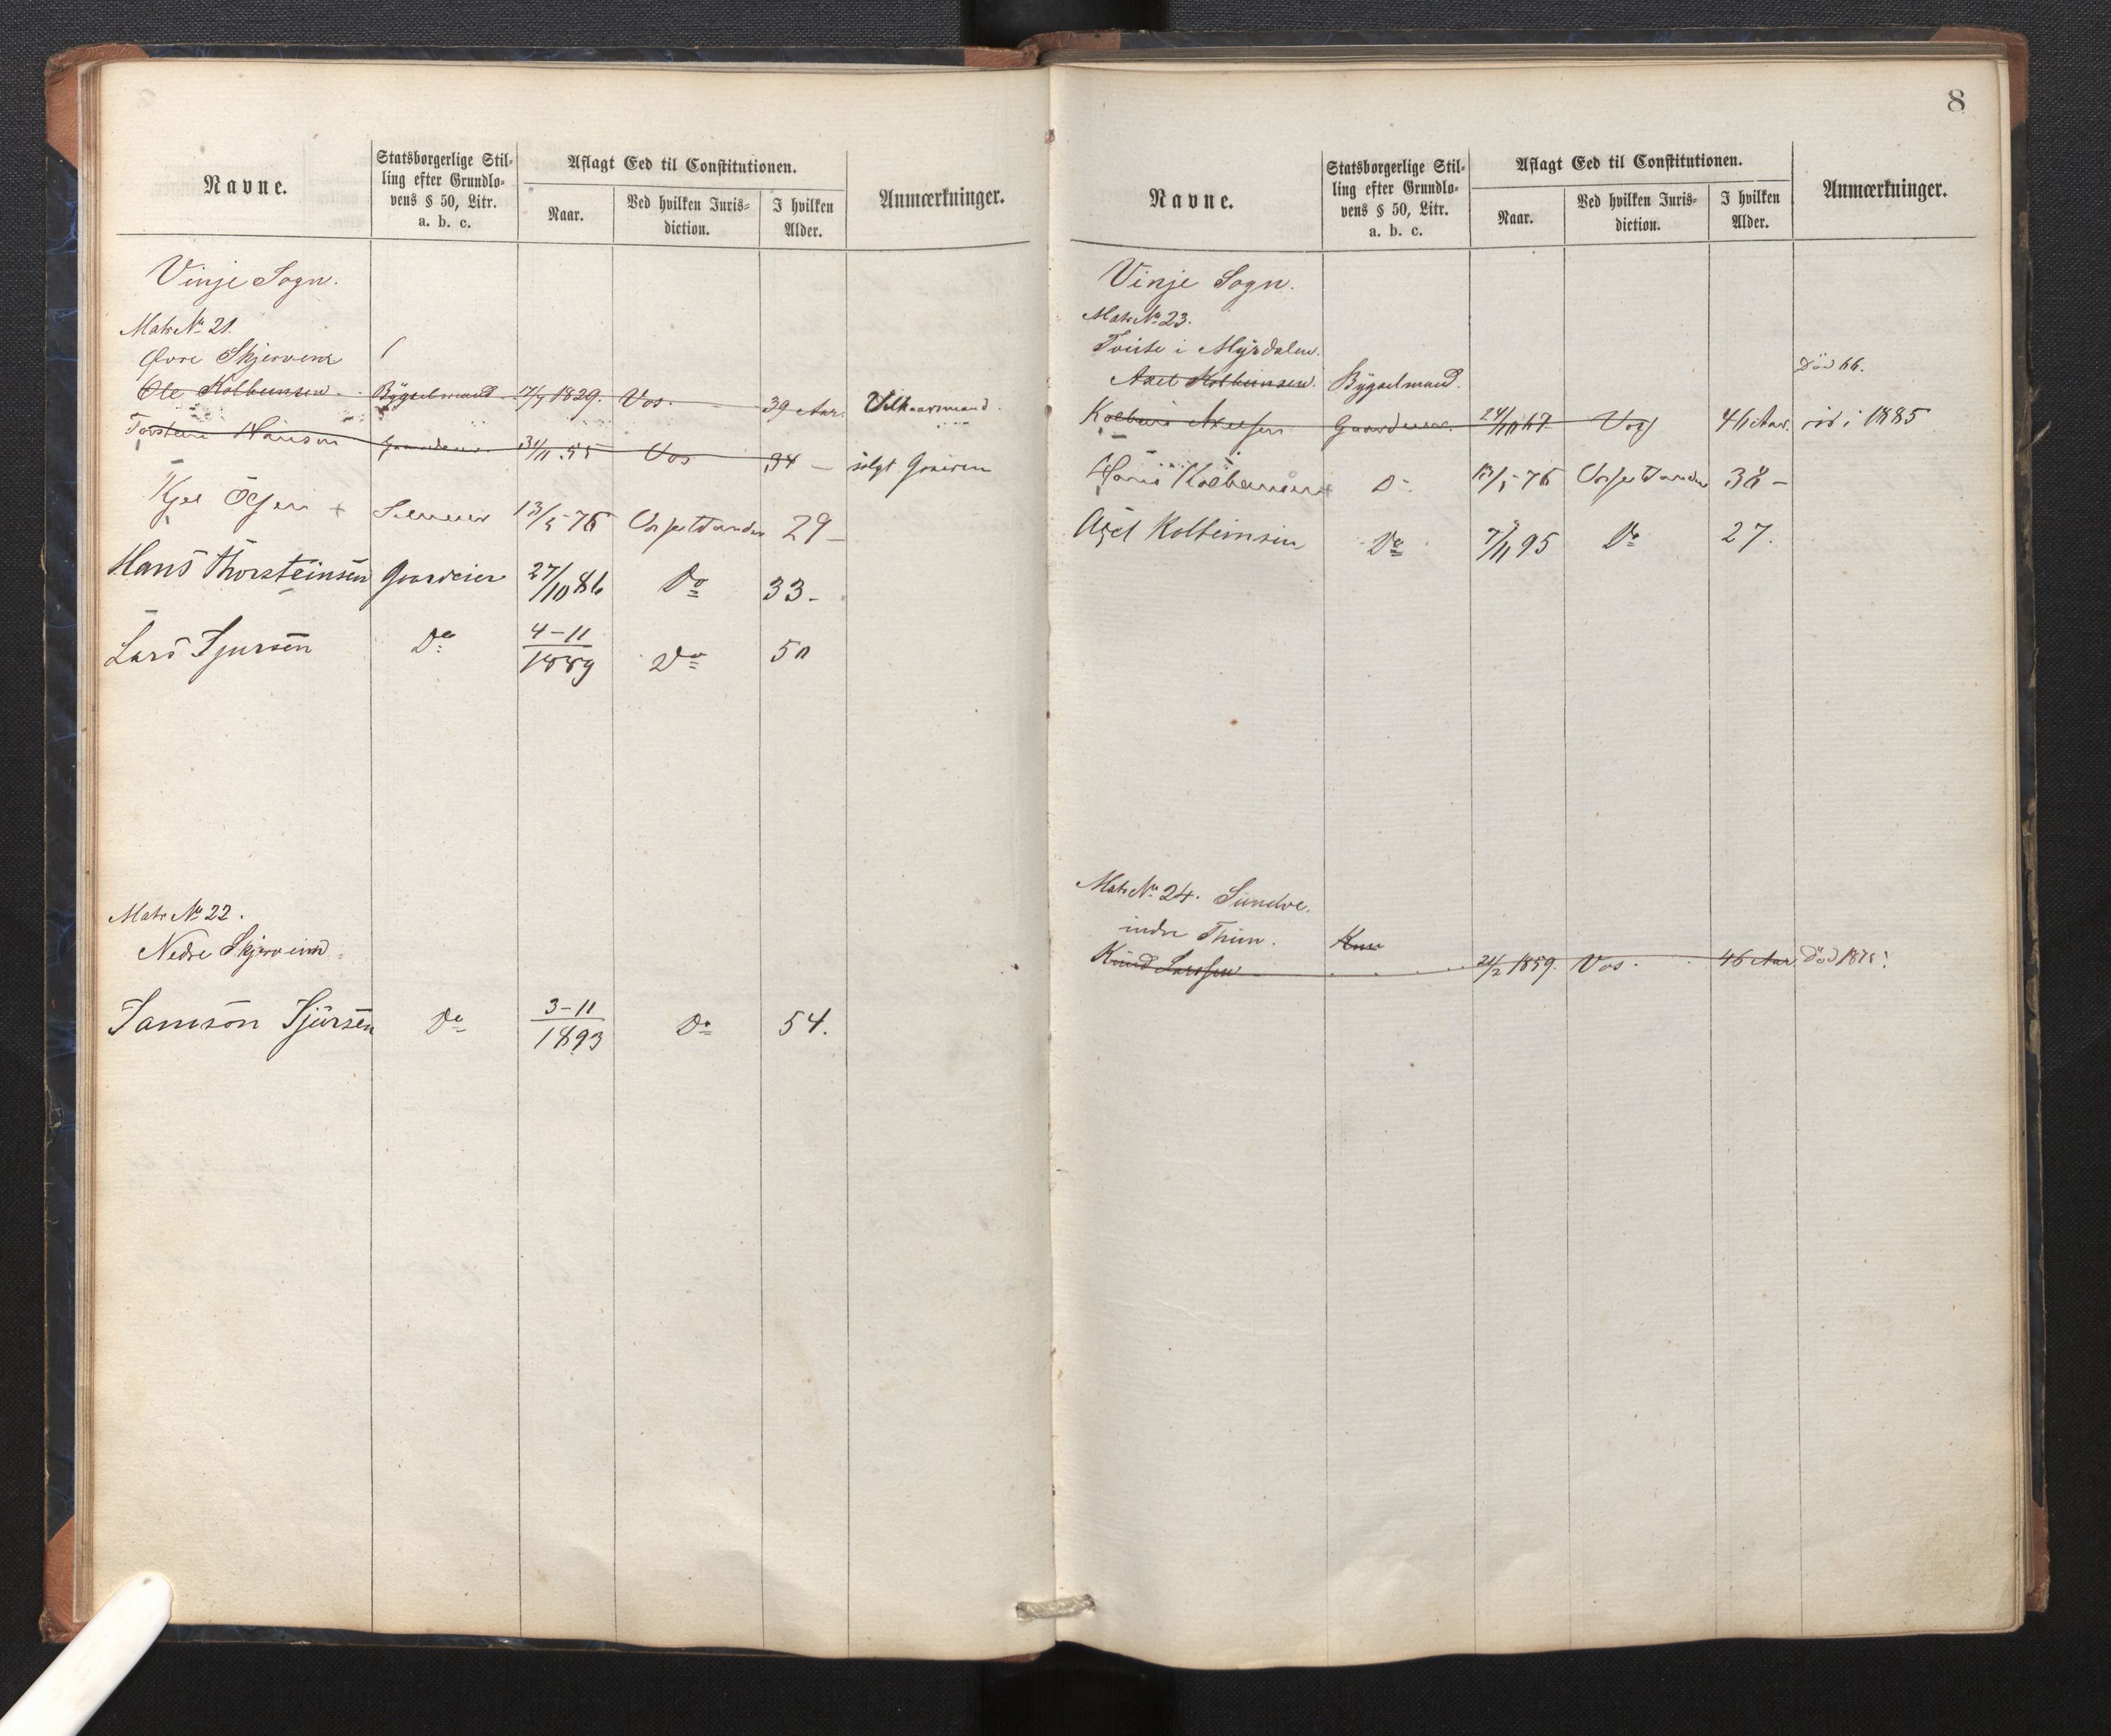 Navne.
Statsborgerlige Stil-
ling efter Grundlo-
vens § 50, Litr.
a. b. c.
Aflagt Eed til Constitutionen.
Naar.
Ved hvilken Juris-
diction.
I hvilken
Alder.
Anmærkninger.
Vinje Sogn.
Matr No 21.
Øvre Skjervene
Ole Kolbeinsen Bygselmand 1829. Vos. 39 Aar. Vilkaarsmand.
Torstein Hansen Gaardeier 31/11 55 Vos 34 — solgt Gaarden
Kjel Olsen + 13/5 76 Vossestranden 29 –
Hans Thorsteinsen Gaardeier 27/10 86 Do 33 –
Lars Sjursen Do 4-11 1889 Do 50
Matr No 22.
Nedre Skjerveim
Samson Sjursen Do 3-11 1893 Do 54.
8
Navne.
Statsborgerlige Stil-
ling efter Grundlo-
vens § 50, Litr.
a. b. c.
Aflagt Eed til Constitutionen.
Naar.
Ved hvilken Juris-
diction.
I hvilken
Alder.
Anmærkninger.
Vinje Sogn.
Matr No 23.
Tveite i Myrdalen.
Axel Kolbeinsen. Bygselmand. Død 66.
Kolbein Axelsen Gaardeier. 24/10 67 Vos 46 Aar. i 1885
Hans Kolbeinsen + Do 13/5 76 Vossestranden 38 –
Axel Kolbeinsen Do 7/11 95 Do 27.
Matr No 24. Sundve.
indre Thun.
Knud Larssen 21/2 1859. Vos. 46 Aar Død